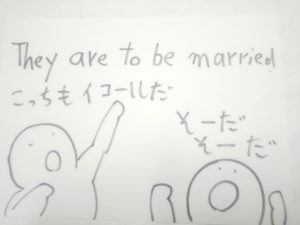 They are to be married
こっちもイコールだ
そーだ
そーだ